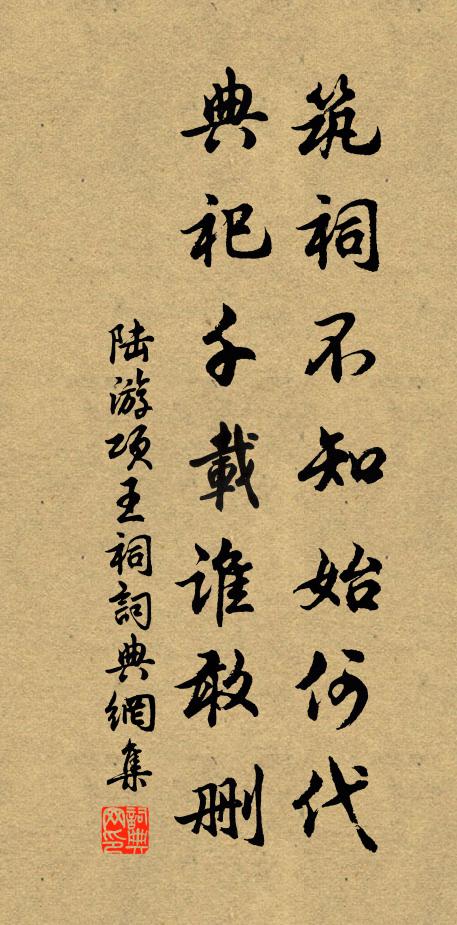 筑祠不知始何代
典祀千載谁敢删
陆游项王祠詞典網集
詞典网印